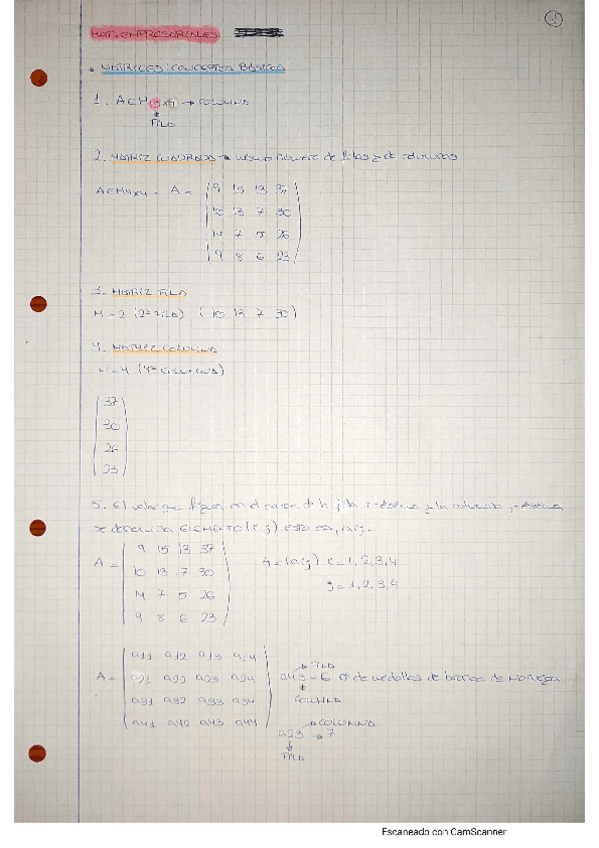 1
MAT. EMPRESARIALES
• MATRICES: CONCEPTOS BÁSICOS
1. A∈M 4x4 → COLUMNA
FILA
2. MATRIZ CUADRADA → mismo número de filas y de columnas
A∈M4x4 - A =
9 15 13 37
10 13 7 30
14 7 5 26
9 8 6 23
3. MATRIZ FILA
M - 2 (2ª FILA) ( 10 13 7 30 )
4. MATRIZ COLUMNA
4 (4ª COLUMNA)
37
30
26
23
5. El valor que figura en el cruce de la fila i-ésima y la columna j-ésima
se denomina ELEMENTO (i,j) esto es, aij.
A =
9 15 13 37
10 13 7 30
14 7 5 26
9 8 6 23
A = (aij) i = 1, 2, 3, 4
j = 1, 2, 3, 4
A =
a11 a12 a13 a14
a21 a22 a23 a24
a31 a32 a33 a34
a41 a42 a43 a44
FILA
a43 - 6 nº de medallas de bronce de Noruega
COLUMNA
COLUMNA
a23 → 7
FILA
Escaneado con CamScanner